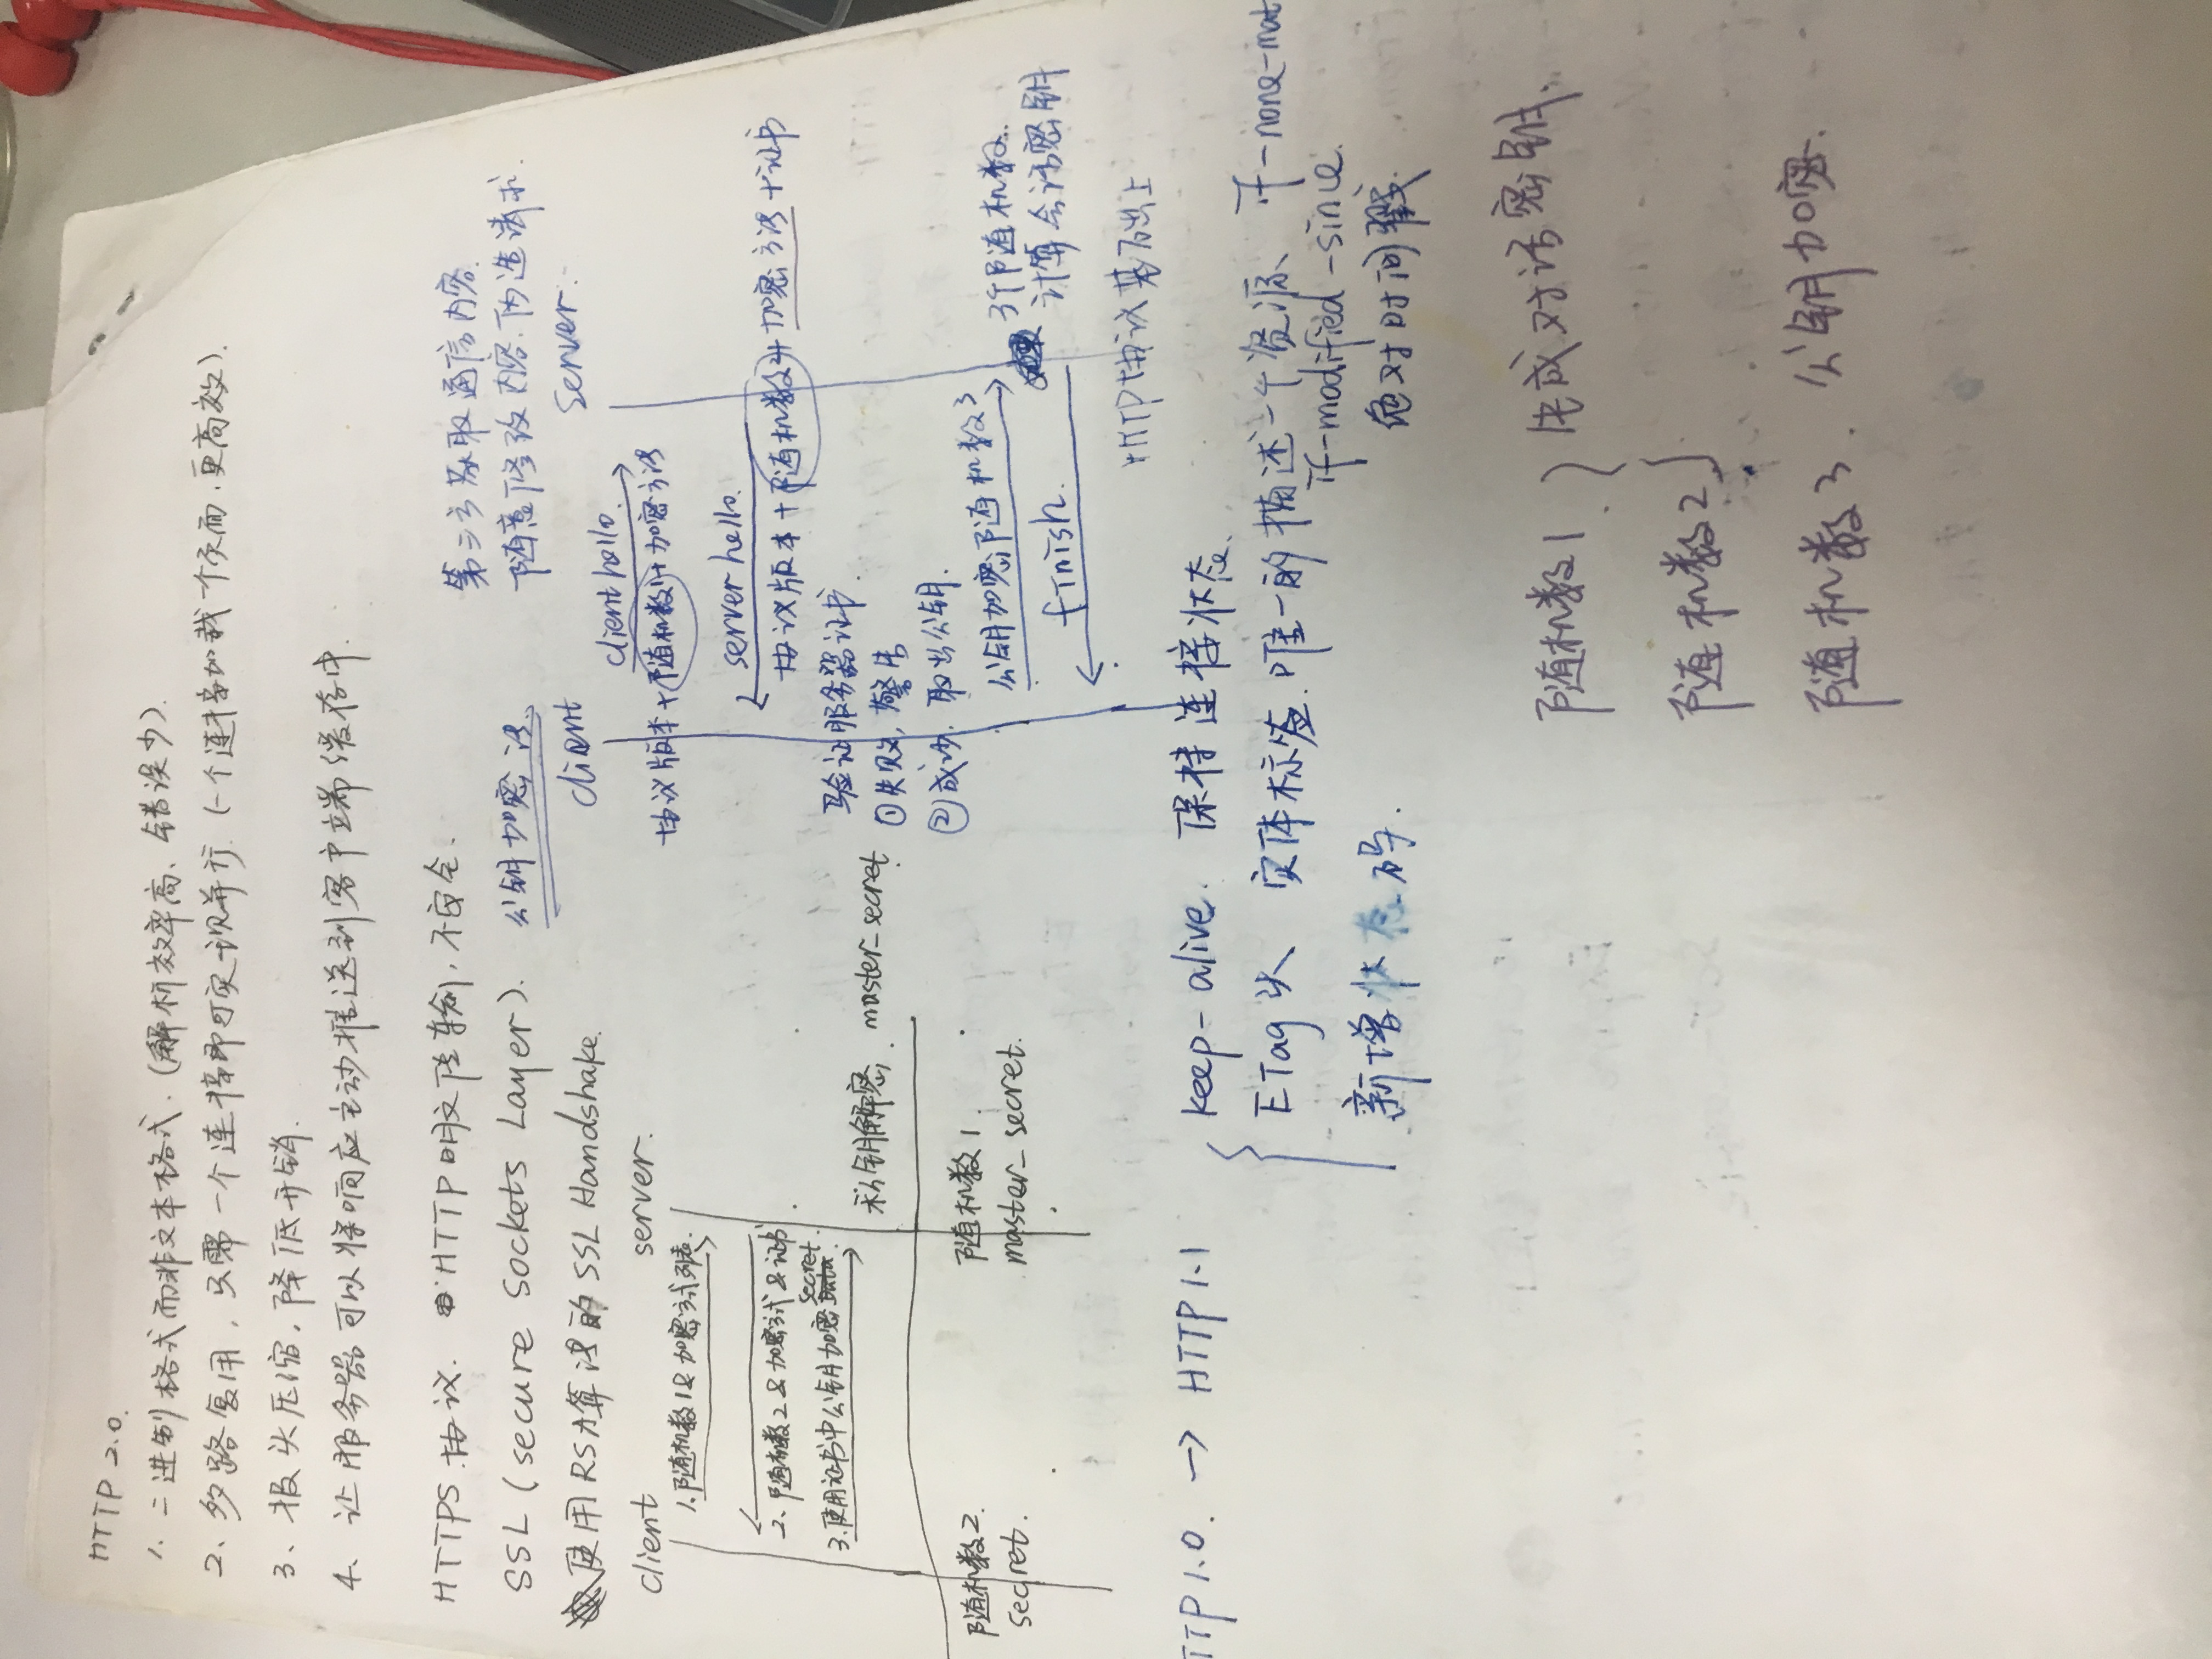 HTTP 2.0.
1、二进制格式而非文本格式.(解析效率高、错误少).
2、多路复用,只需一个连接即可实现并行.(一个连接加载一个页面,更高效).
3、报头压缩,降低开销.
4、让服务器可以将响应主动推送到客户端缓存中.
HTTPS 协议. HTTP明文传输,不安全.
第三方获取通信内容.
随意修改内容.伪造请求.
SSL (secure Sockets Layer). 公钥加密法
使用RSA算法的 SSL Handshake.
client server.
1.随机数1&加密方式列表.
2.随机数2&加密方式&证书
secret.
3.使用证书中公钥加密
私钥解密. master_secret
随机数2.
secret.
随机数1.
master_secret.
client server.
client hello.
协议版本+随机数1+加密方法
server hello.
协议版本+随机数2+加密方法+证书
验证服务器证书.
①失败,警告
②成功.取出公钥.
公钥加密随机数3
3个随机数.
计算会话密钥
finish.
HTTP协议基础上
TTP1.0. → HTTP1.1
keep-alive. 保持连接状态.
ETag头 实体标签.唯一的描述一个资源. if-none-mat
if-modified-since.
绝对时间戳.
新增状态码.
随机数1
生成对话密钥.
随机数2
随机数3. 公钥加密.